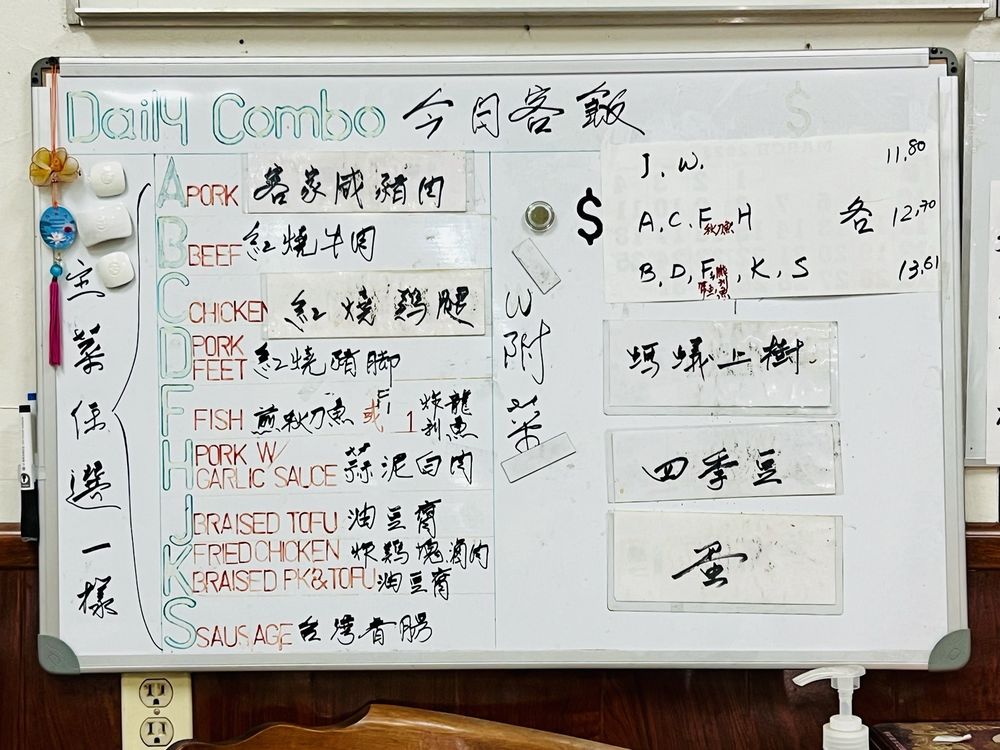 Daily Combo 今日客飯
主菜任選一樣
A PORK 客家咸豬肉
B BEEF 紅燒牛肉
C CHICKEN 紅燒鷄腿
D PORK FEET 紅燒豬腳
F FISH 煎秋刀魚 或 F1 炸龍利魚
H PORK W/ GARLIC SAUCE 蒜泥白肉
J BRAISED TOFU 油豆腐
K FRIED CHICKEN 炸鷄塊
BRAISED PK&TOFU 滷肉油豆腐
S SAUSAGE 台灣香腸
$
J, W. 11.80
A, C, F 秋刀魚, H 各 12.70
B, D, F, K, S 13.61
W 附菜
螞蟻上樹
四季豆
蛋